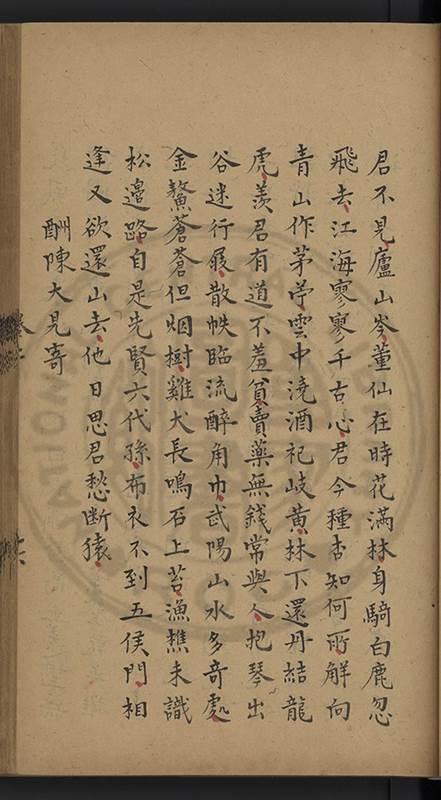 君不見廬山岑董仙在時花滿林身騎白鹿忽
飛去江海寥寥千古心君今種杏知何所解向
青山作茅亭雲中澆酒祀岐黃林下還丹結龍
虎羡君有道不羞貧賣藥無錢常與人抱琴出
谷迷行屐散帙臨流醉角巾武陽山水多奇處
金鰲蒼蒼但烟樹雞犬長鳴石上苔漁樵未識
松邉路自是先賢六代孫布衣不到五侯門相
逢又欲還山去他日思君愁斷猿
酬陳大見寄